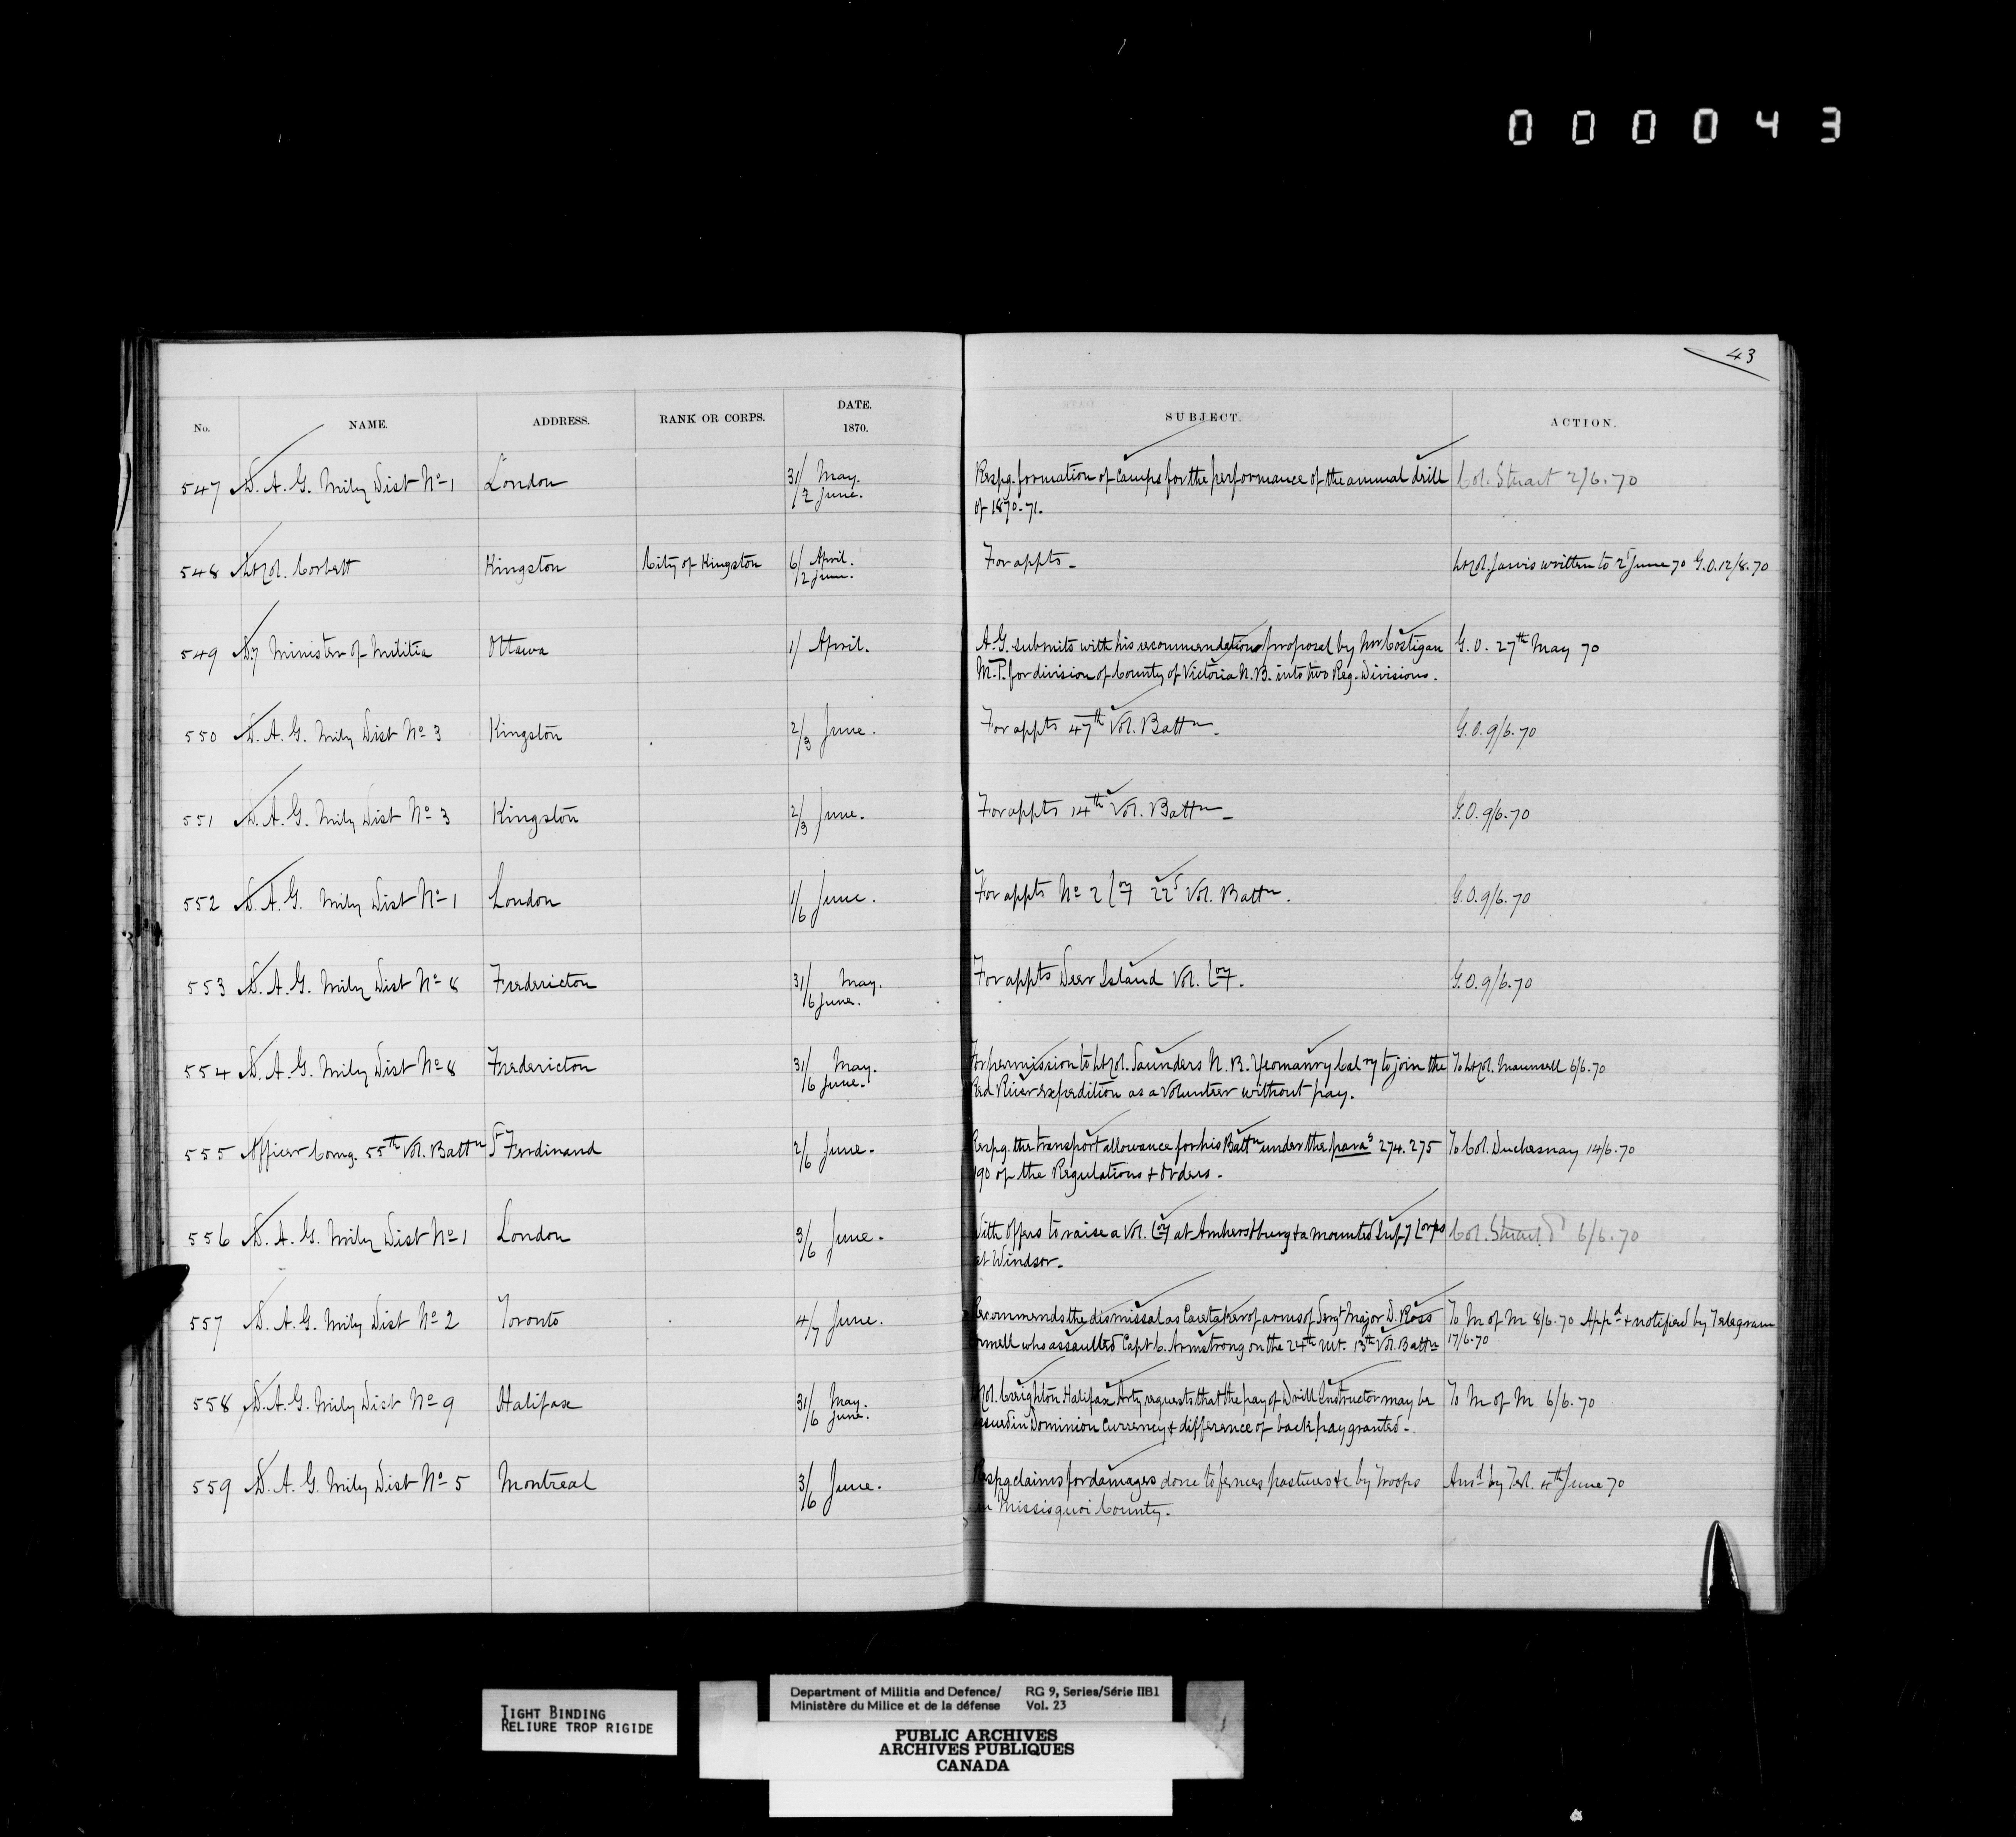 000043
43
No. NAME. ADDRESS. RANK OR CORPS. DATE. 1870. SUBJECT. ACTION.
547 D. A. G. Mily Dist No 1 London 31/ May. /2 June. Respg. formation of Camps for the performance of the annual drill Col. Stuart 2/6.70
of 1870-71.
548 Lt Col. Corbett Kingston City of Kingston 6/ April. /2 June. For appts. Lt Col. Jarvis written to 2d June 70 G.O. 12/8.70
549 Dy Minister of Militia Ottawa 1/ April. A.G. submits with his recommendation proposal by Mr Costigan G. O. 27th May 70
M.P. for division of County of Victoria N.B. into two Reg. Divisions.
550 D. A. G. Mily Dist No 3 Kingston 2/3 June. For appts 47th Vol. Battn. G.O. 9/6.70
551 D. A. G. Mily Dist No 3 Kingston 2/3 June. For appts 14th Vol. Battn. G.O. 9/6.70
552 D. A. G. Mily Dist No 1 London 1/6 June. For appts No 2 Coy 22d Vol. Battn. G.O. 9/6.70
553 D. A. G. Mily Dist No 8 Fredericton 31/ May. /6 June. For appts Deer Island Vol. Coy. G.O. 9/6.70
554 D. A. G. Mily Dist No 8 Fredericton 31/ May. /6 June. For permission to Lt Col. Saunders N. B. Yeomanry Calry to join the To Lt Col. Maunsell 6/6.70
Red River Expedition as a Volunteer without pay.
555 Officer Comg. 55th Vol. Battn St Ferdinand 2/6 June. Respg. the transport allowance for his Battn under the paras 274. 275 To Col. Duchesnay 14/6.70
190 of the Regulations & Orders.
556 D. A. G. Mily Dist No 1 London 3/6 June. With offers to raise a Vol. Coy at Amherstburg & a mounted Infy Corps Col. Stuart 6/6.70
at Windsor.
557 D. A. G. Mily Dist No 2 Toronto 4/7 June. Recommends the dismissal as Caretaker of arms of Sergt Major D. Ross To M of M 8/6.70 Appd & notified by Telegram
who assaulted Capt C. Armstrong on the 24th Ult. 13th Vol. Battn 17/6.70
558 D. A. G. Mily Dist No 9 Halifax 31/ May. /6 June. Col. Creighton Halifax Arty requests that the pay of Drill Instructor may be To M of M 6/6.70
issued in Dominion Currency & difference of back pay granted.
559 D. A. G. Mily Dist No 5 Montreal 3/6 June. Respg claims for damages done to fences pastures &c by Troops Ansd by Tel. 4th June 70
in Missisquoi County.
TIGHT BINDING
RELIURE TROP RIGIDE
Department of Militia and Defence/ RG 9, Series/Série IIB1
Ministère du Milice et de la défense Vol. 23
PUBLIC ARCHIVES
ARCHIVES PUBLIQUES
CANADA